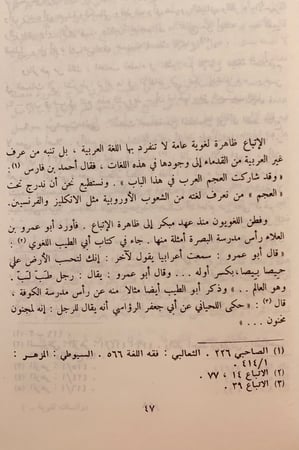 الإتباع ظاهرة لغوية عامة لا تنفرد بها اللغة العربية ، بل تنبه من عرف
غير العربية من القدماء إلى وجودها في هذه اللغات ، فقال أحمد بن فارس (١) :
« وقد شاركت العجم العرب في هذا الباب » . ونستطيع نحن أن ندرج تحت
« العجم » من نعرف لغته من الشعوب الأوروبية مثل الانكليز والفرنسيين .
وفطن اللغويون منذ عهد مبكر إلى ظاهرة الإتباع . فأورد أبو عمرو بن
العلاء رأس مدرسة البصرة أمثلة منها . جاء في كتاب أبي الطيب اللغوي (٢) :
« قال أبو عمرو : سمعت أعرابيا يقول لآخر : إنك لتحسب الأرض علي
حِيصا بِيصا ، بكسر أوله ... وقال أبو عمرو : يقال : رجل طَبّ لَبّ .
وهو العالم .. » وذكر أبو الطيب أيضا مثالا منه عن رأس مدرسة الكوفة ،
قال (٣) : « حكى اللحياني عن أبي جعفر الرؤاسي أنه يقال للرجل : إنه لمجنون
مخنون ... »
(١) الصاحبي ٢٢٦ . الثعالبي : فقه اللغة ٥٦٦ . السيوطي : المزهر :
١/٤١٤ .
(٢) الاتباع ١٤ ، ٧٧ .
(٣) الاتباع ٣٩ .
٤٧